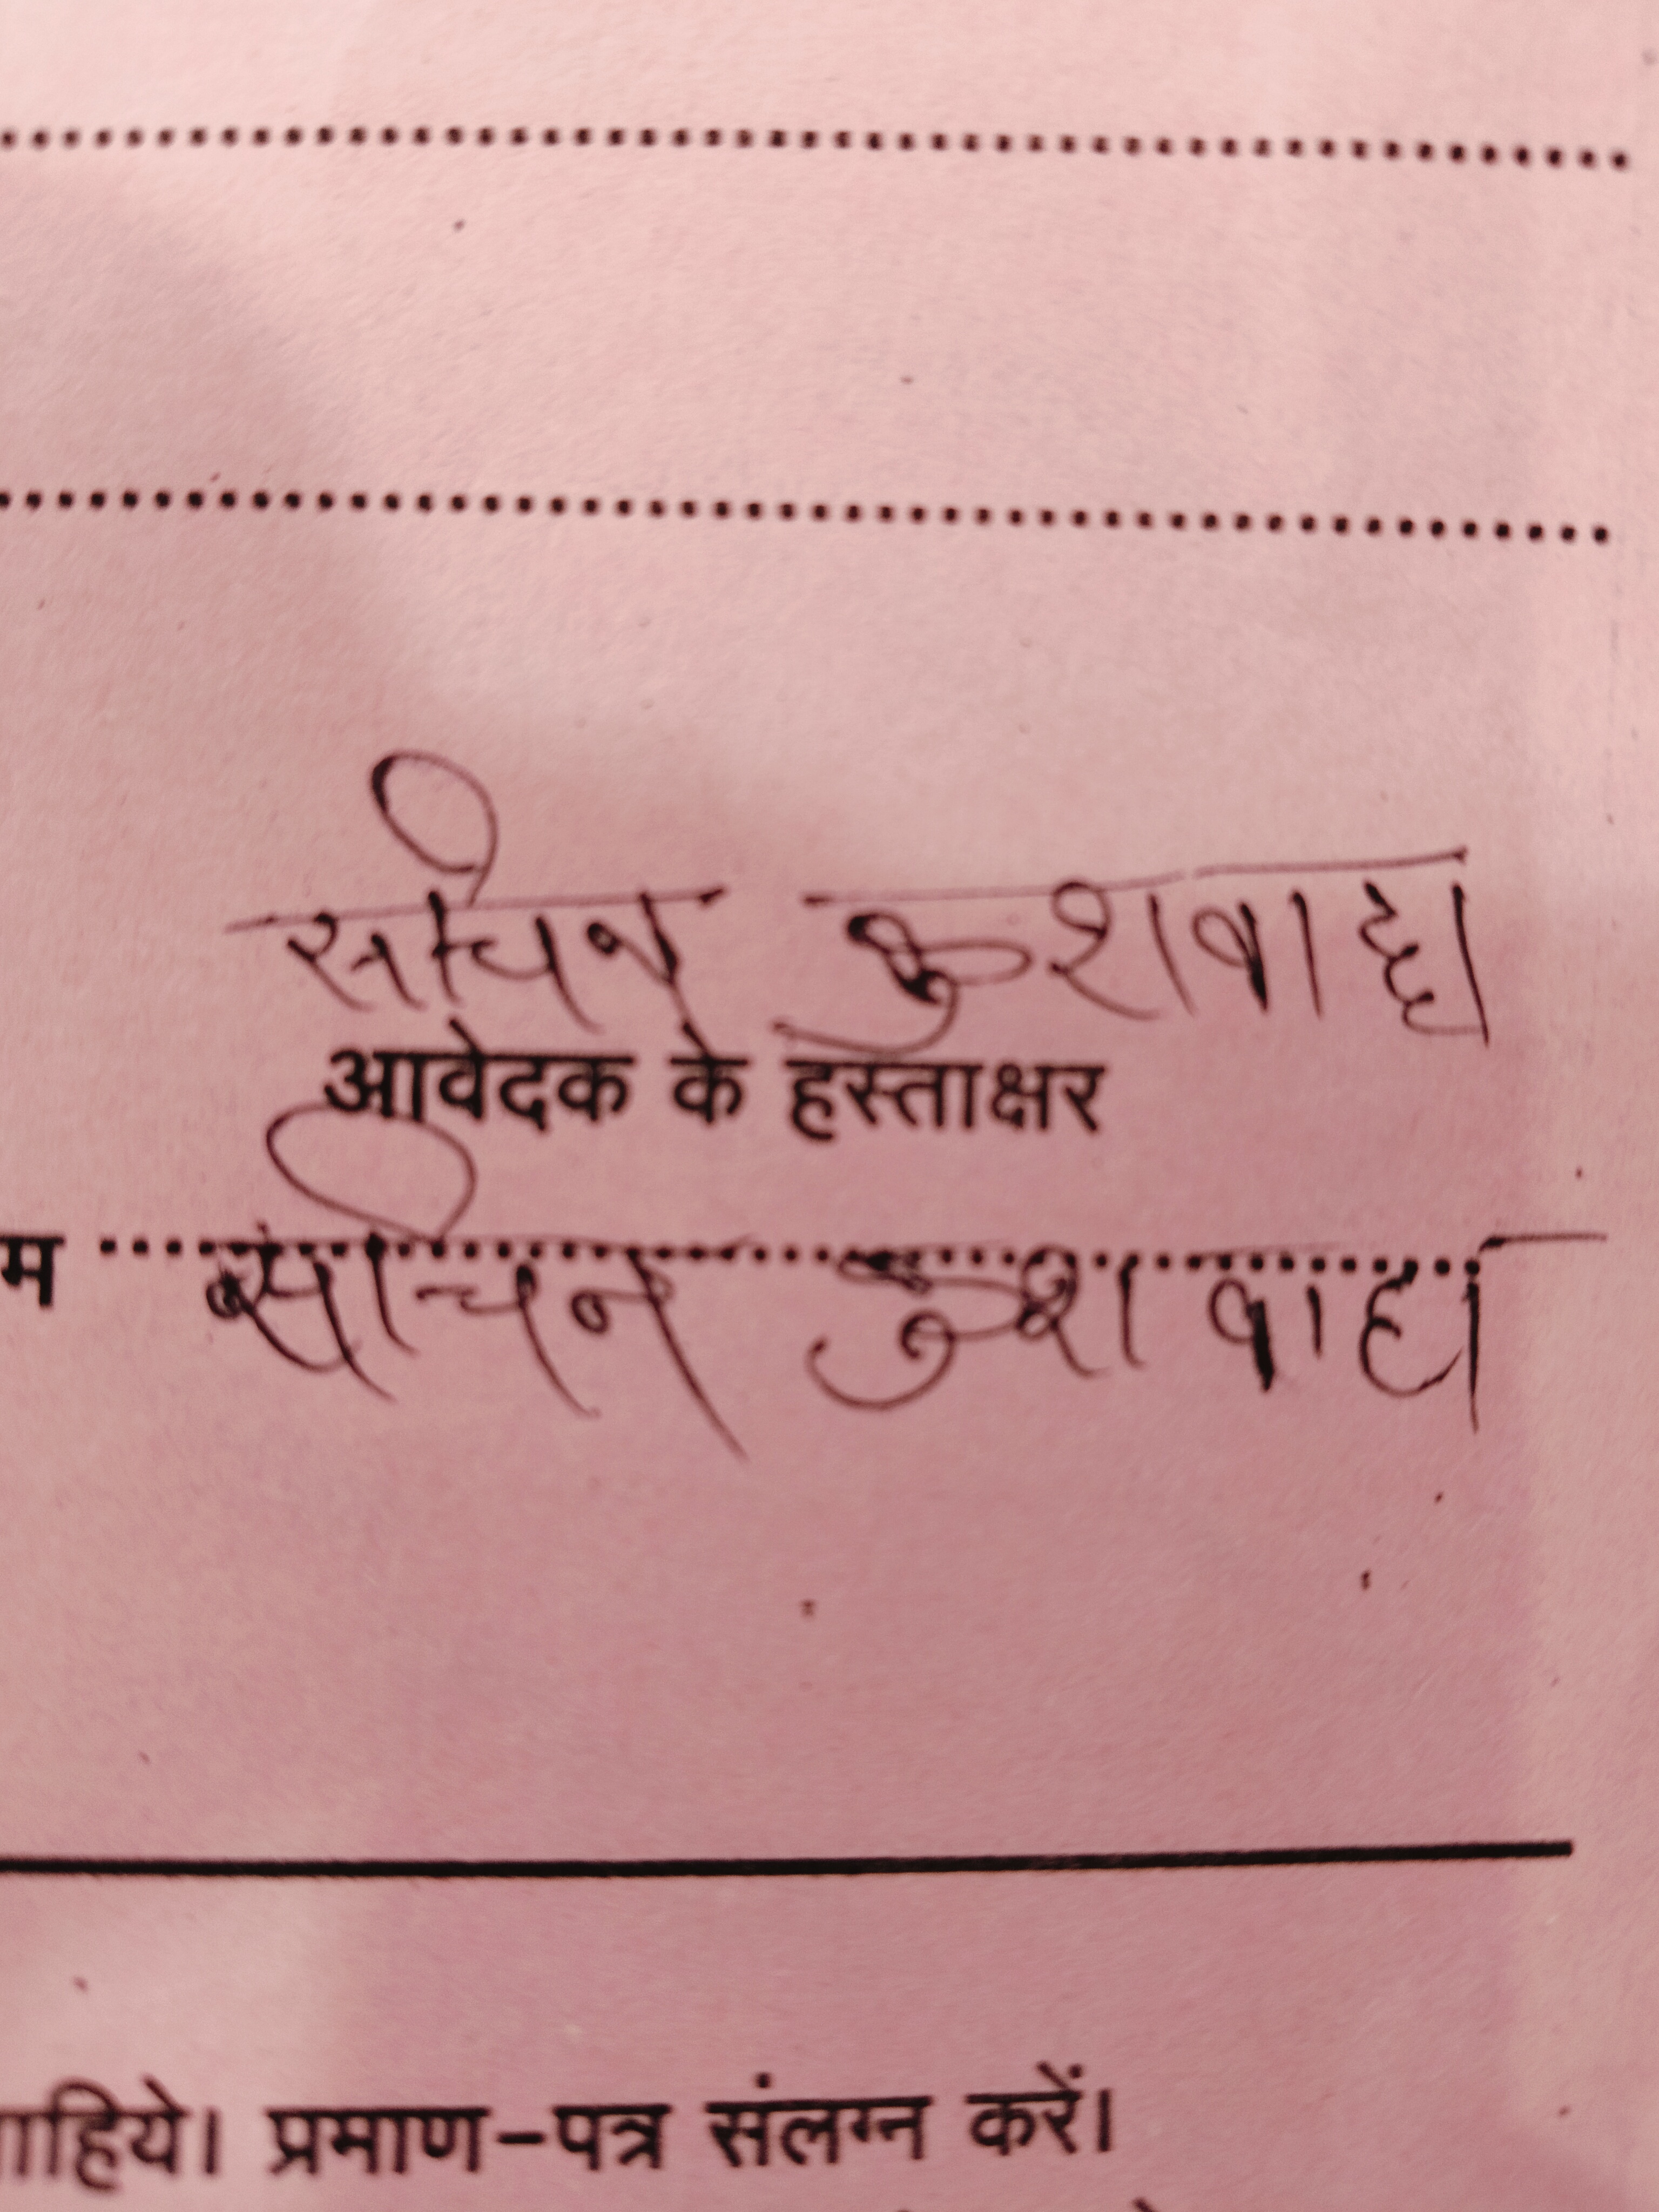 सचिन कुशवाहा
आवेदक के हस्ताक्षर
म .......... सचिन कुशवाहा
ाहिये। प्रमाण-पत्र संलग्न करें।